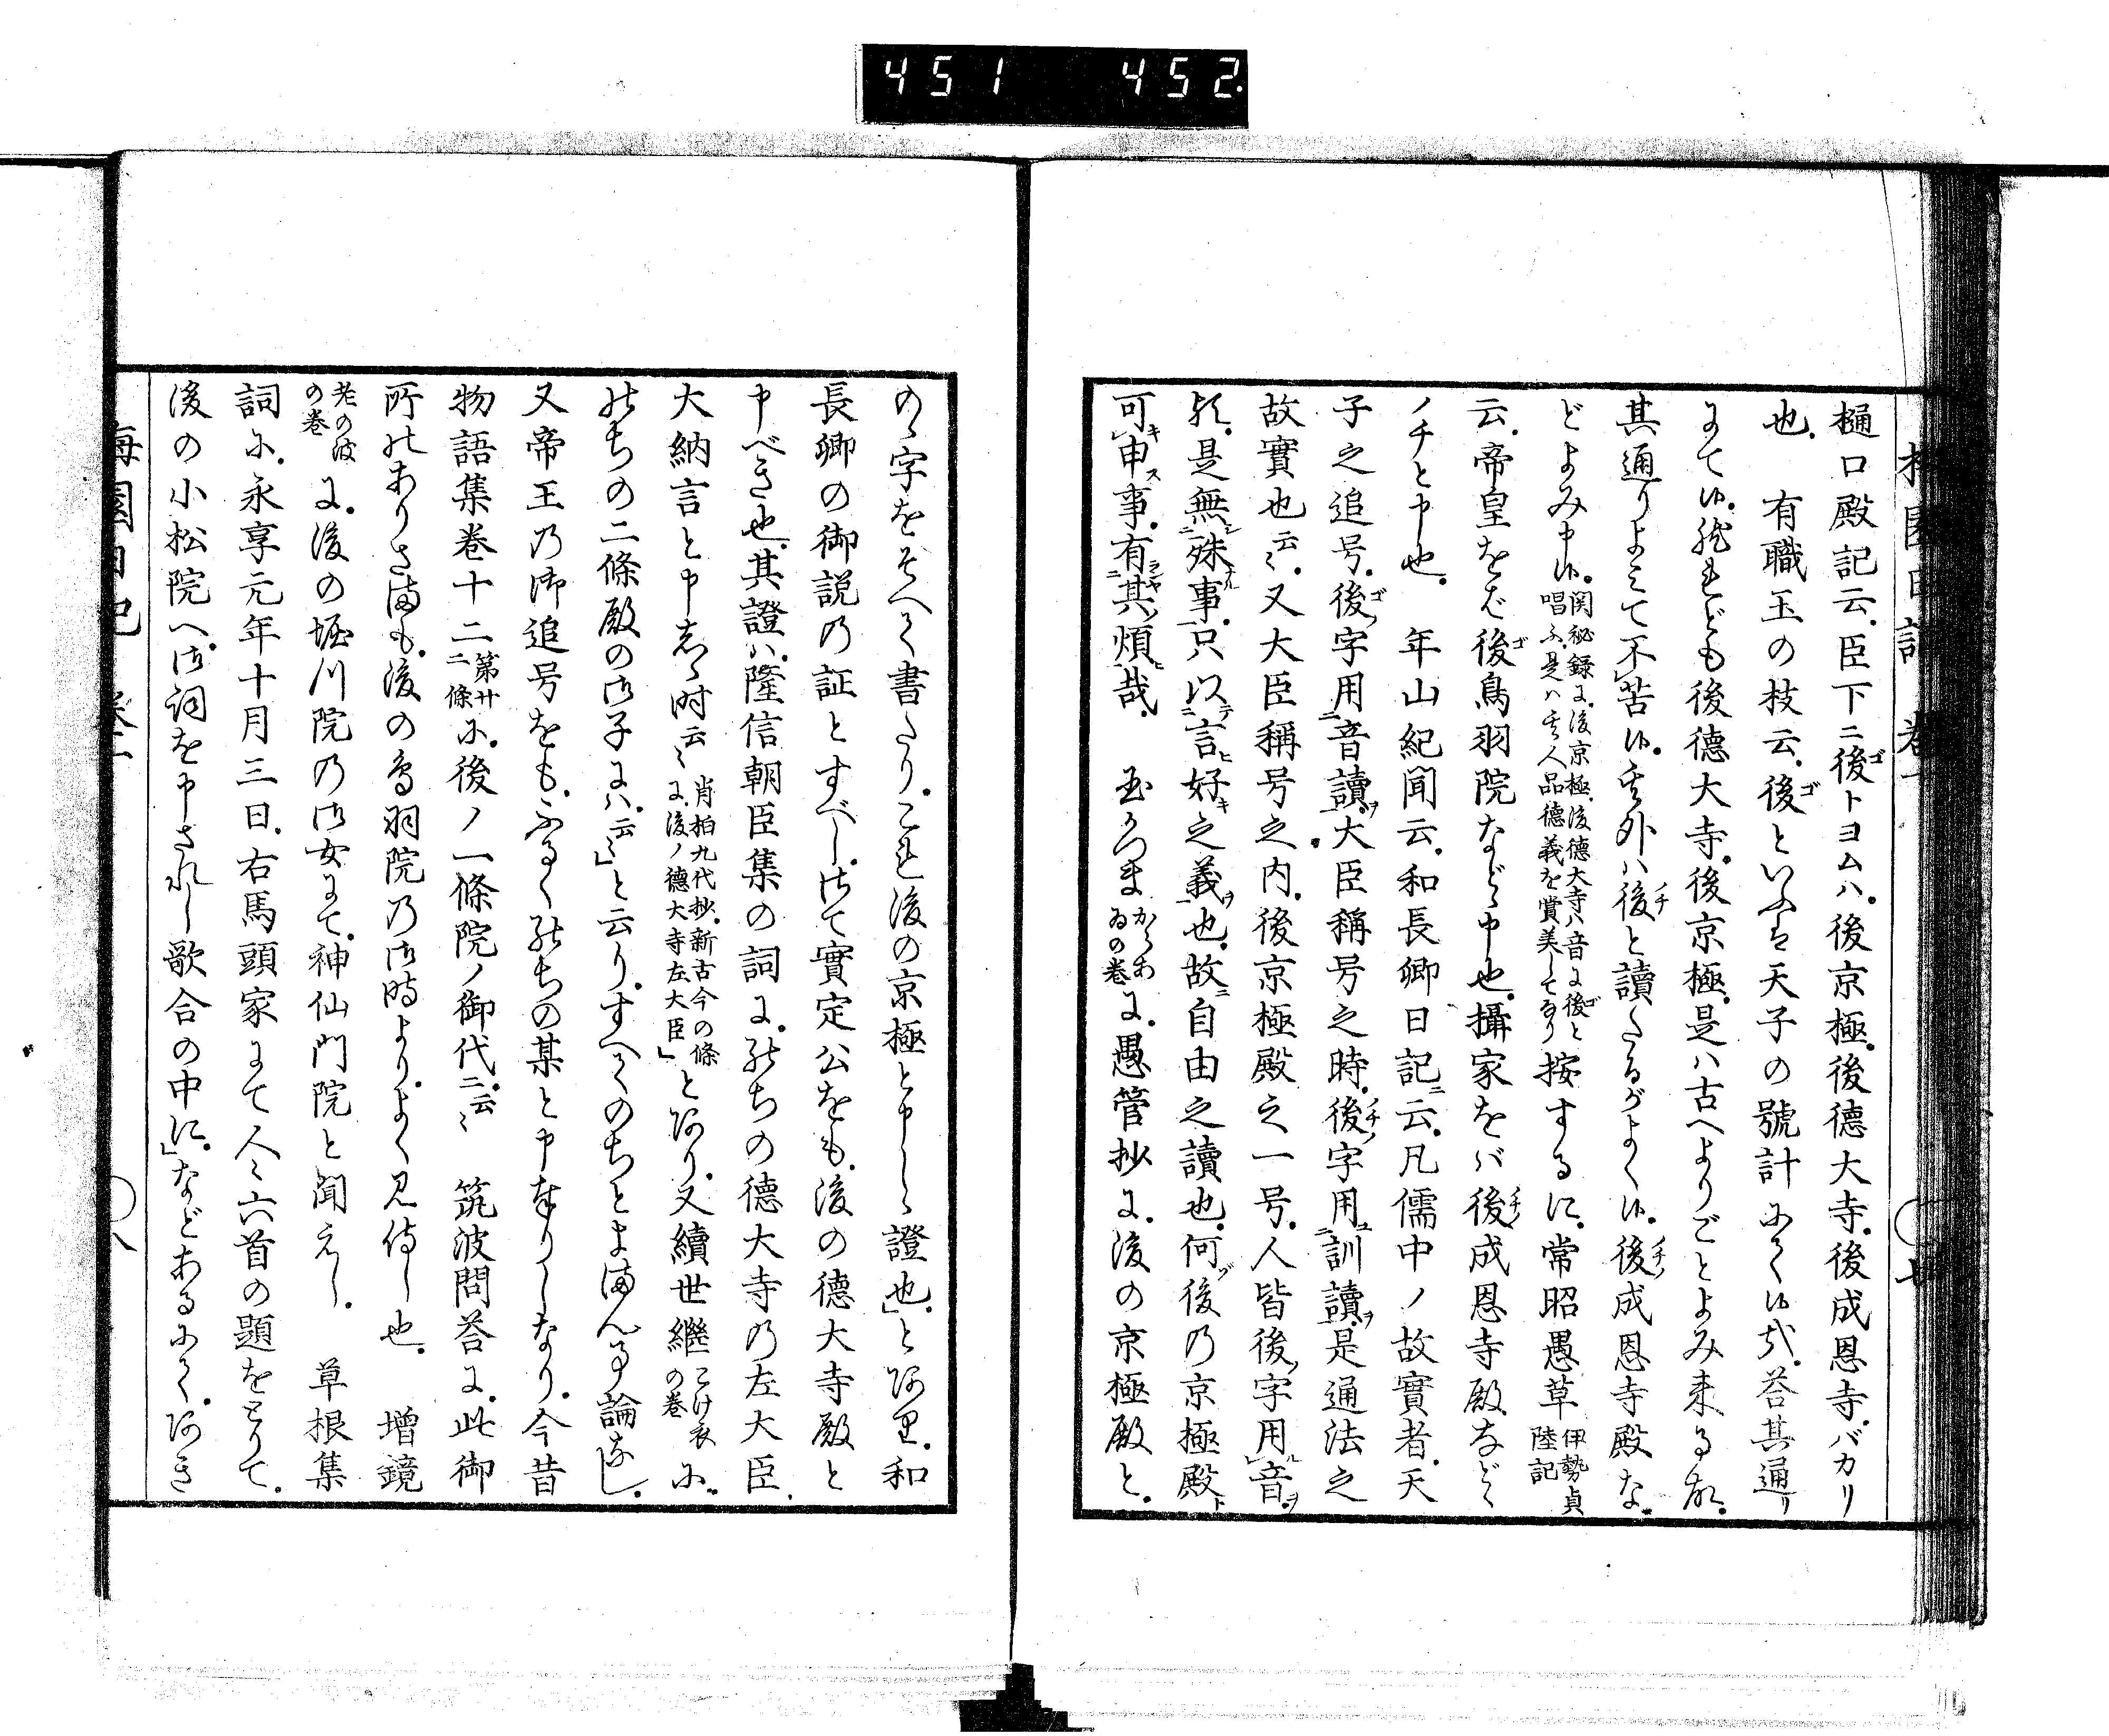 451 452
樋口殿記云、臣下ニ後トヨムハ、後京極、後德大寺、後成恩寺、バカリ
也、 有職玉の枝云、後といふは天子の號計にて候哉、荅其通リ
にて候、然れども後德大寺、後京極、是ハ古へよりごとよみ来る故、
其通りよみて不苦候、其外ハ後と讀たるがよく候、後成恩寺殿な
どよみ申候、関秘録に、後京極、後德大寺ハ音に後と唱ふ、是ハ其人品德義を賞美してなり 按するに、常昭愚草伊勢貞陸記
云、帝皇をば後鳥羽院など申也、攝家をバ後成恩寺殿など
ノチと申也、 年山紀聞云、和長卿日記ニ云、凡儒中ノ故實者、天
子之追号、後字用音讀、大臣稱号之時、後字用訓讀、是通法之
故實也云〻、又大臣稱号之内、後京極殿之一号、人皆後字用音、
是無殊事、只以言好之義也、故自由之讀也、何後乃京極殿ト
可申事、有其煩哉、 玉かつまからあゐの巻に、愚管抄に、後の京極殿と、
のゝ字をそへて書たり、これ後の京極と申しゝ證也、」とあり、和
長卿の御説の証とすべし、さて實定公をも、後の德大寺殿と
申べき也、其證ハ、隆信朝臣集の詞に、のちの德大寺の左大臣、
大納言と申しゝ時云〻 肖柏九代抄、新古今の條に、後ノ德大寺左大臣」とあり、又續世繼こけ衣の巻に、
のちの二條殿の御子にハ、云〻」と云り、すへてのちとよまん事論なし、
又帝王の御追号をも、ふるくのちの某と申奉りしなり、今昔
物語集巻十二第廿二條に、後ノ一條院ノ御代ニ云〻 筑波問荅に、此御
所のありさまも、後の鳥羽院の御時より、よく見侍し也、 增鏡
老の波の巻に、後の堀川院の御女にて、神仙門院と聞えし、 草根集
詞に、永享元年十月三日、右馬頭家にて人〻六首の題をとりて、
後の小松院へ、御詞を申されし歌合の中に、」などあるにて、
梅園日記 巻